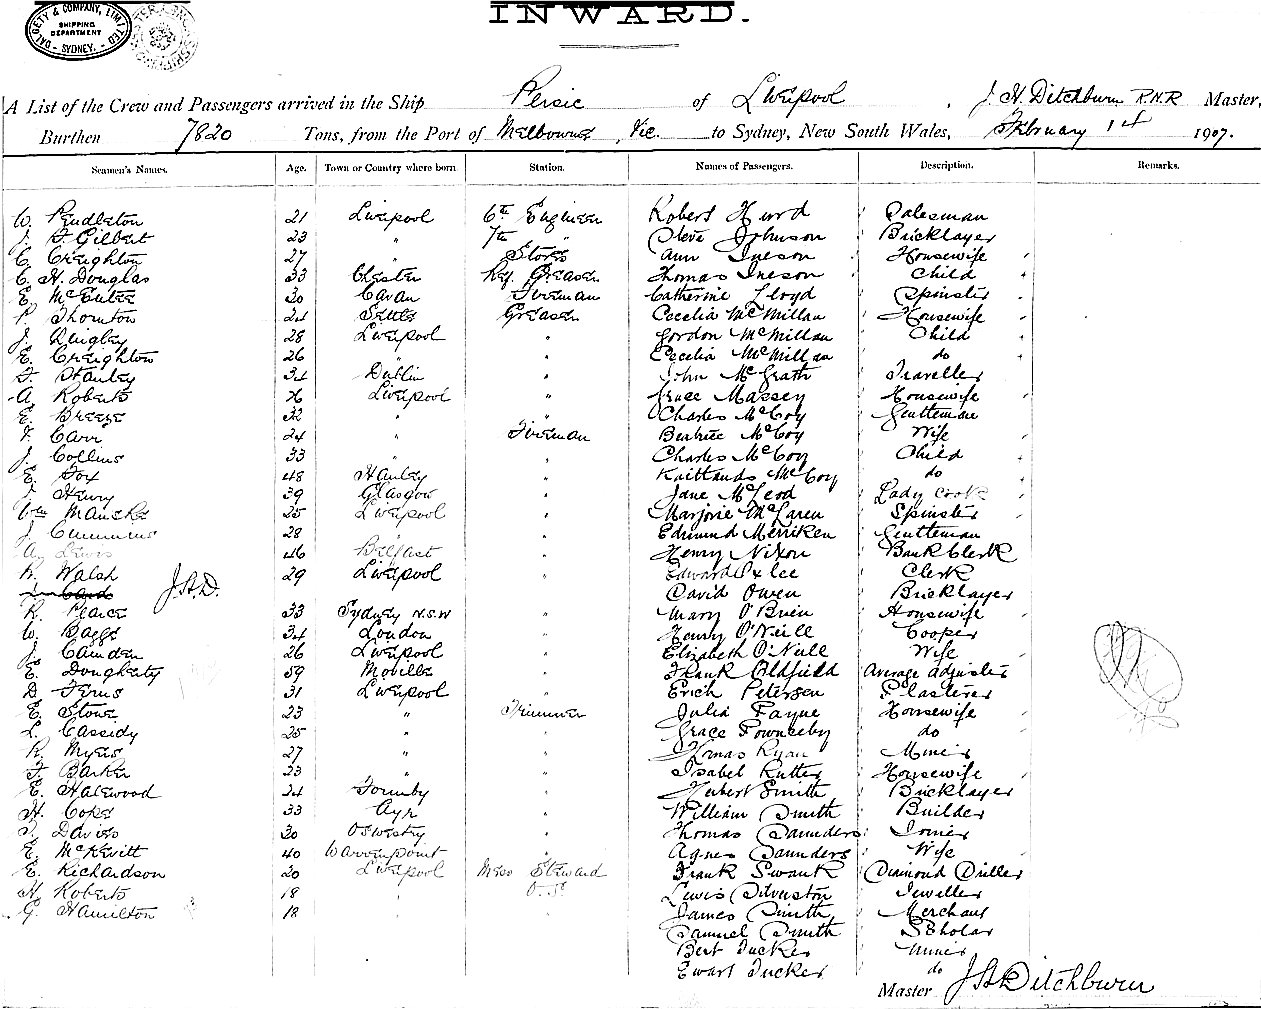 DALGETY & COMPANY, LIMITED
SHIPPING
DEPARTMENT
- SYDNEY. -
INWARD.
A List of the Crew and Passengers arrived in the Ship Persic of Liverpool, J. H. Ditchburn R.N.R Master,
Burthen 7820 Tons, from the Port of Melbourne, Vic. to Sydney, New South Wales, February 14 1907.
Seamen's Names. Age. Town or Country where born. Station. Names of Passengers. Description. Remarks.
W. Pendleton 21 Liverpool 6th Engineer Robert Hurd Salesman
J. F. Gilbert 23 " 7th " Steve Johnson Bricklayer
C. Creighton 27 " Stores Ann Ineson Housewife
C. H. Douglas 33 Chester Ref. Greaser Thomas Ineson Child
E. McEntee 30 Cavan Fireman Catherine Lloyd Spinster
P. Thornton 24 Settle Greaser Cecelia McMillan Housewife
J. Quigley 28 Liverpool " Gordon McMillan Child
E. Creighton 26 " " Cecelia McMillan do
F. Stanley 34 Dublin " John McGrath Traveller
A. Roberts 26 Liverpool " Grace Massey Housewife
E. Breeze 32 " " Charles McCoy Gentleman
F. Carr 24 " Fireman Beatrice McCoy Wife
J. Collins 33 " " Charles McCoy Child
E. Fox 48 Hanley " McCoy do
J. Henry 39 Glasgow " Jane McLeod Lady Cook
Wm 25 Liverpool " Marjorie McLaren Spinster
J. Cummins 28 " " Edmund Merriken Gentleman
A. Lewis 46 Belfast " Henry Nixon Bank Clerk
R. Walsh 29 Liverpool " Edward Clerk
J.H.D. David Owen Bricklayer
R. Pearce 33 Sydney N.S.W " Mary O'Brien Housewife
W. Baggs 34 London " Henry O'Neill Cooper
J. Camden 26 Liverpool " Elizabeth O'Neill Wife
E. Dougherty 59 Moville " Frank Oldfield Average adjuster
D. Ferns 31 Liverpool " Erich Petersen Plasterer
E. Stone 23 " Trimmer Julia Payne Housewife
L. Cassidy 25 " " Grace Powneeby do
R. Myers 27 " " Thomas Ryan Miner
F. Barker 23 " " Isabel Rutter Housewife
E. Halewood 24 Formby " Hubert Smith Bricklayer
H. Cope 33 Ayr " William Smith Builder
T. Davies 30 Oswestry " Thomas Saunders Joiner
E. McKevitt 40 Warrenpoint " Agnes Saunders Wife
E. Richardson 20 Liverpool Mess Steward Frank Swank Diamond Driller
H. Roberts 18 " O.S. Lewis Silverston Jeweller
G. Hamilton 18 " " James Smith Merchant
Samuel Smith Scholar
Bert Tucker Miner
Ewart Tucker do
Master J H Ditchburn